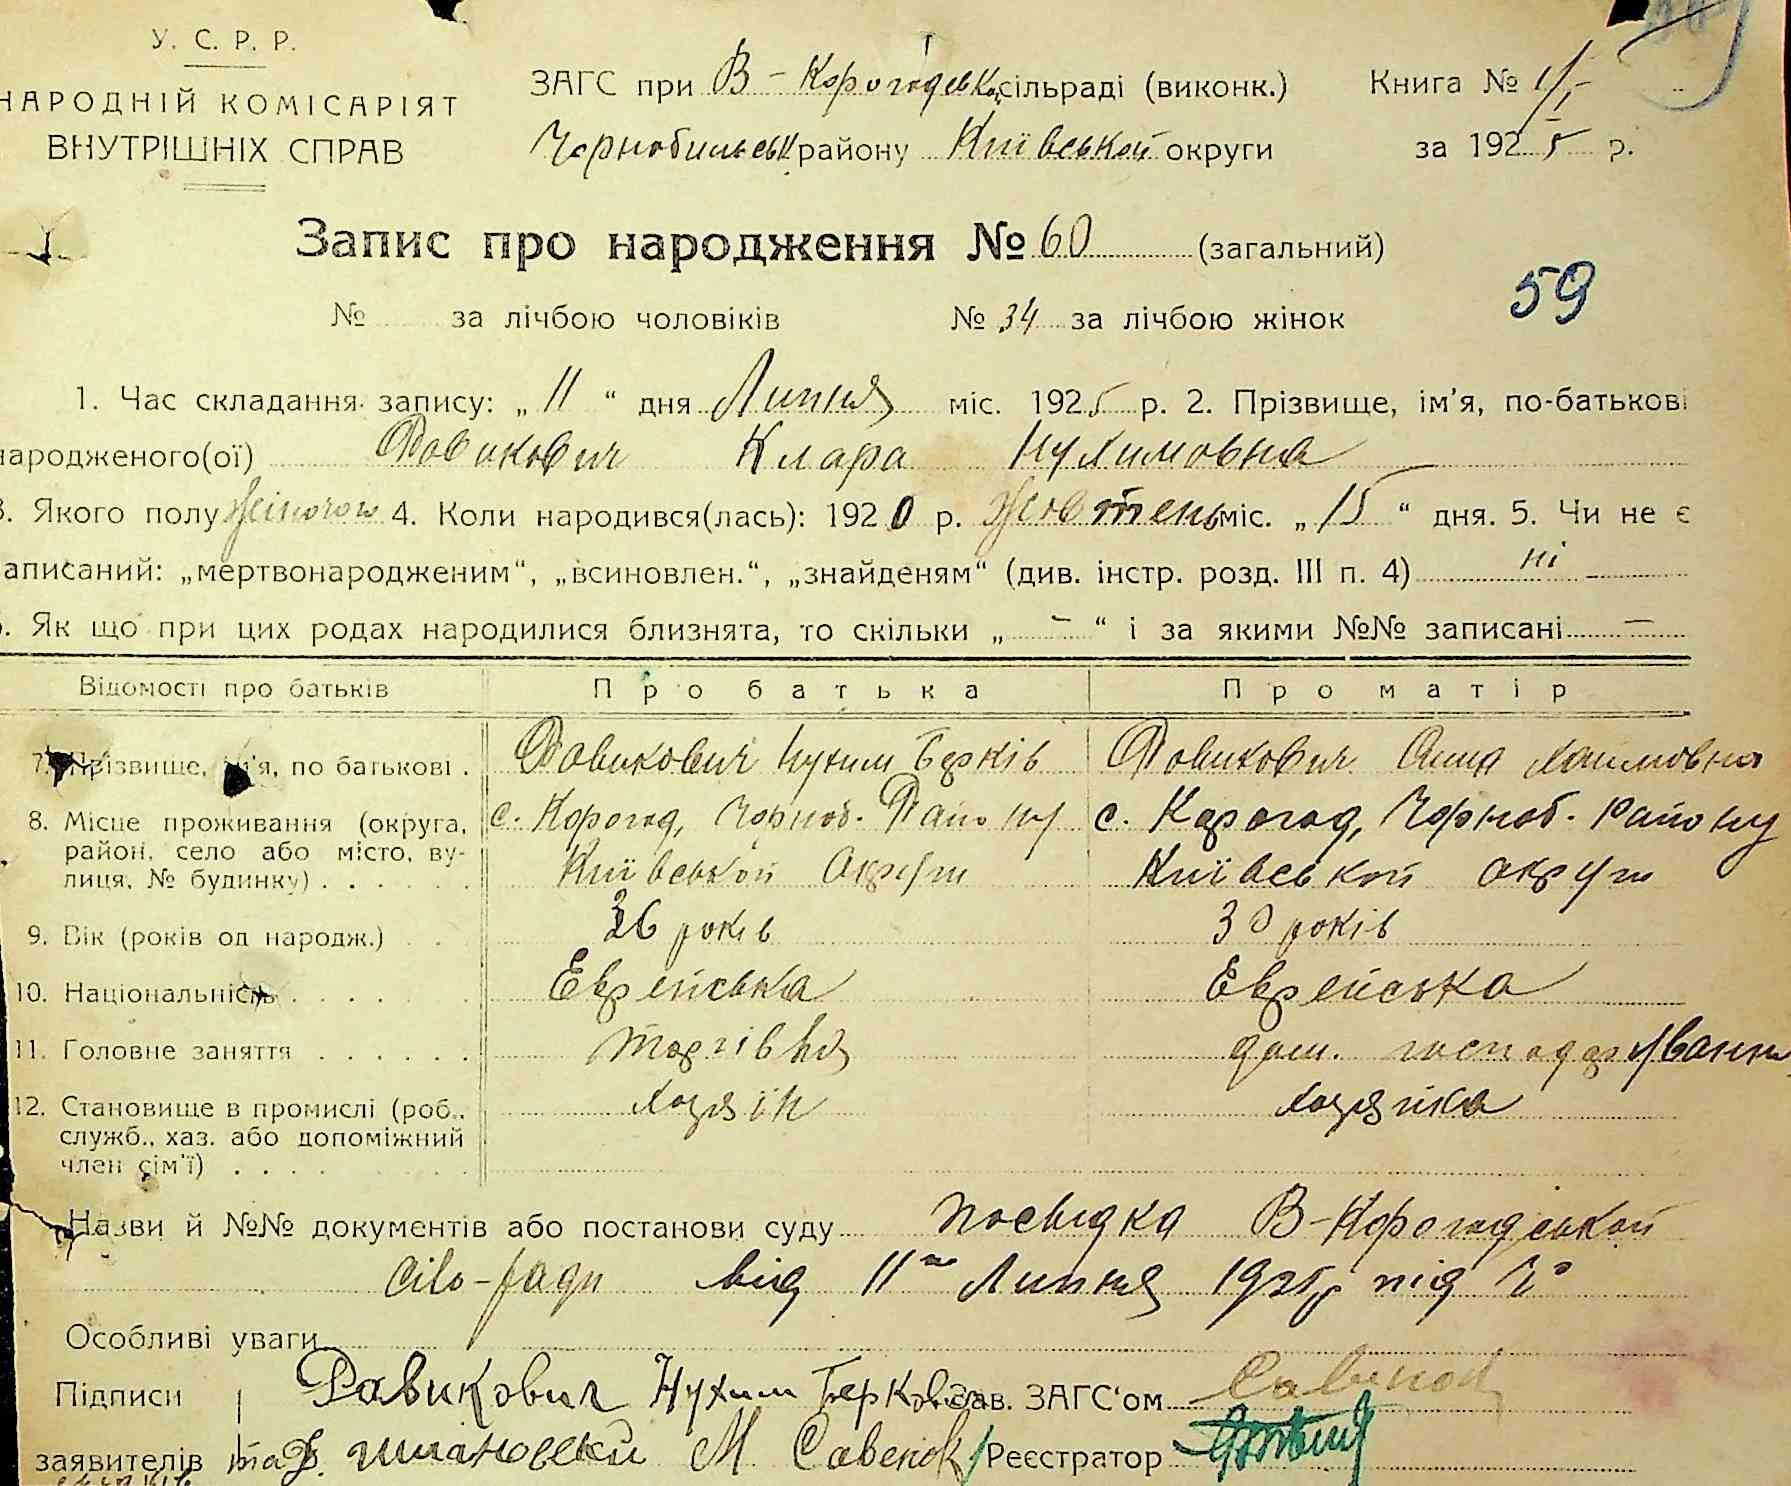 У. С. Р. Р.
НАРОДНІЙ КОМІСАРІЯТ
ВНУТРІШНІХ СПРАВ
ЗАГС при В-Корогодській сільраді (виконк.) Книга №
Чорнобильськ району Київської округи за 1925 р.
Запис про народження № 60 (загальний)
59
№ за лічбою чоловіків № 34 за лічбою жінок
1. Час складання запису: „11“ дня Липня міс. 1925 р. 2. Прізвище, ім'я, по-батькові
народженого(ої) Равикович Клара Нухимовна
3. Якого полу жіночого 4. Коли народився(лась): 1920 р. Жовтень міс. „15“ дня. 5. Чи не є
записаний: „мертвонародженим“, „всиновлен.“, „знайденям“ (див. інстр. розд. III п. 4) ні —
6. Як що при цих родах народилися близнята, то скільки „ – “ і за якими №№ записані —
Відомості про батьків Про батька Про матір
7. Прізвище, ім'я, по батькові . Равикович Нухим Берків Равикович Анна Хаимовна
8. Місце проживання (округа, район, село або місто, вулиця, № будинку) . . . . . .
с. Корогод, Чорноб. Району Київської Округи
с. Корогод, Чорноб. Району Київської округи
9. Вік (років од народж.) . . 36 років 30 років
10. Національність . . . . . Еврейська Еврейська
11. Головне заняття . . . . . . Торгівля дом. господарування
12. Становище в промислі (роб., служб., хаз. або допоміжний член сім'ї) . . . .
хазяїн хазяйка
Назви й №№ документів або постанови суду посвідка В-Корогодської
сіль-ради від 11го Липня 1925р під №
Особливі уваги
Підписи Равикович Нухим Беркович Зав. ЗАГС'ом Савенок
заявителів та М Савенок Реєстратор